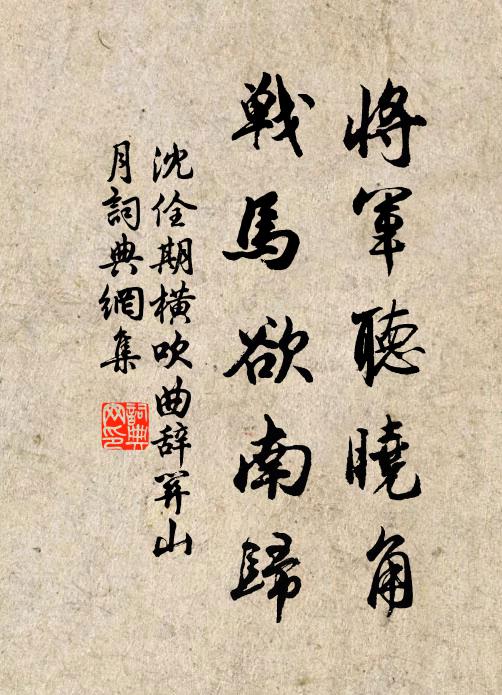 將軍聽曉角
戰馬欲南歸
沈佺期橫吹曲辭關山
月詞典網集
詞典網印